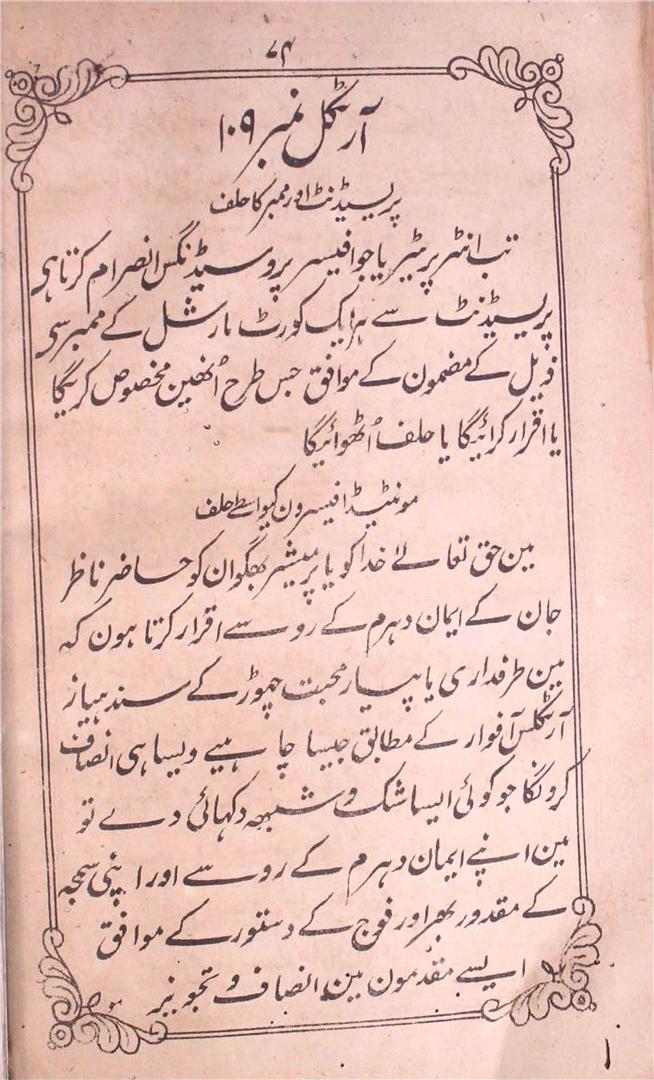 ۷۴
آرٹکل نمبر ۱۰۹
پریسیڈنٹ اور ممبر کا حلف
تب انٹرپریٹیر یا جو افیسر پروسیڈنگس انصرام کرتا ہی
پریسیڈنٹ سے ہر ایک کورٹ مارشل کے ممبر سی
ذیل کے مضمون کے موافق جس طرح اُنھین مخصوص کریگا
یا اقرار کرائیگا یا حلف اُٹھوائیگا
مونٹیڈ افیسرون کیواسطے حلف
مین حق تعالےٰ خدا کو یا پرمیشیر بھگوان کو حاضر ناظر
جان کے ایمان دہرم کے رو سے اقرار کرتا ہون کہ
مین طرفداری یا پیار محبت چھوڑ کے سند
آرٹکلس آف وار کے مطابق جیسا چاہیے ویسا ہی انصاف
کرونگا جو کوئی ایسا شک و شبہہ دکہائی دے تو
مین اپنے ایمان دہرم کے رو سے اور اپنی سمجہہ
کے مقدور بھر اور فوج کے دستور کے موافق
ایسے مقدمون مین انصاف و تجویز
۱